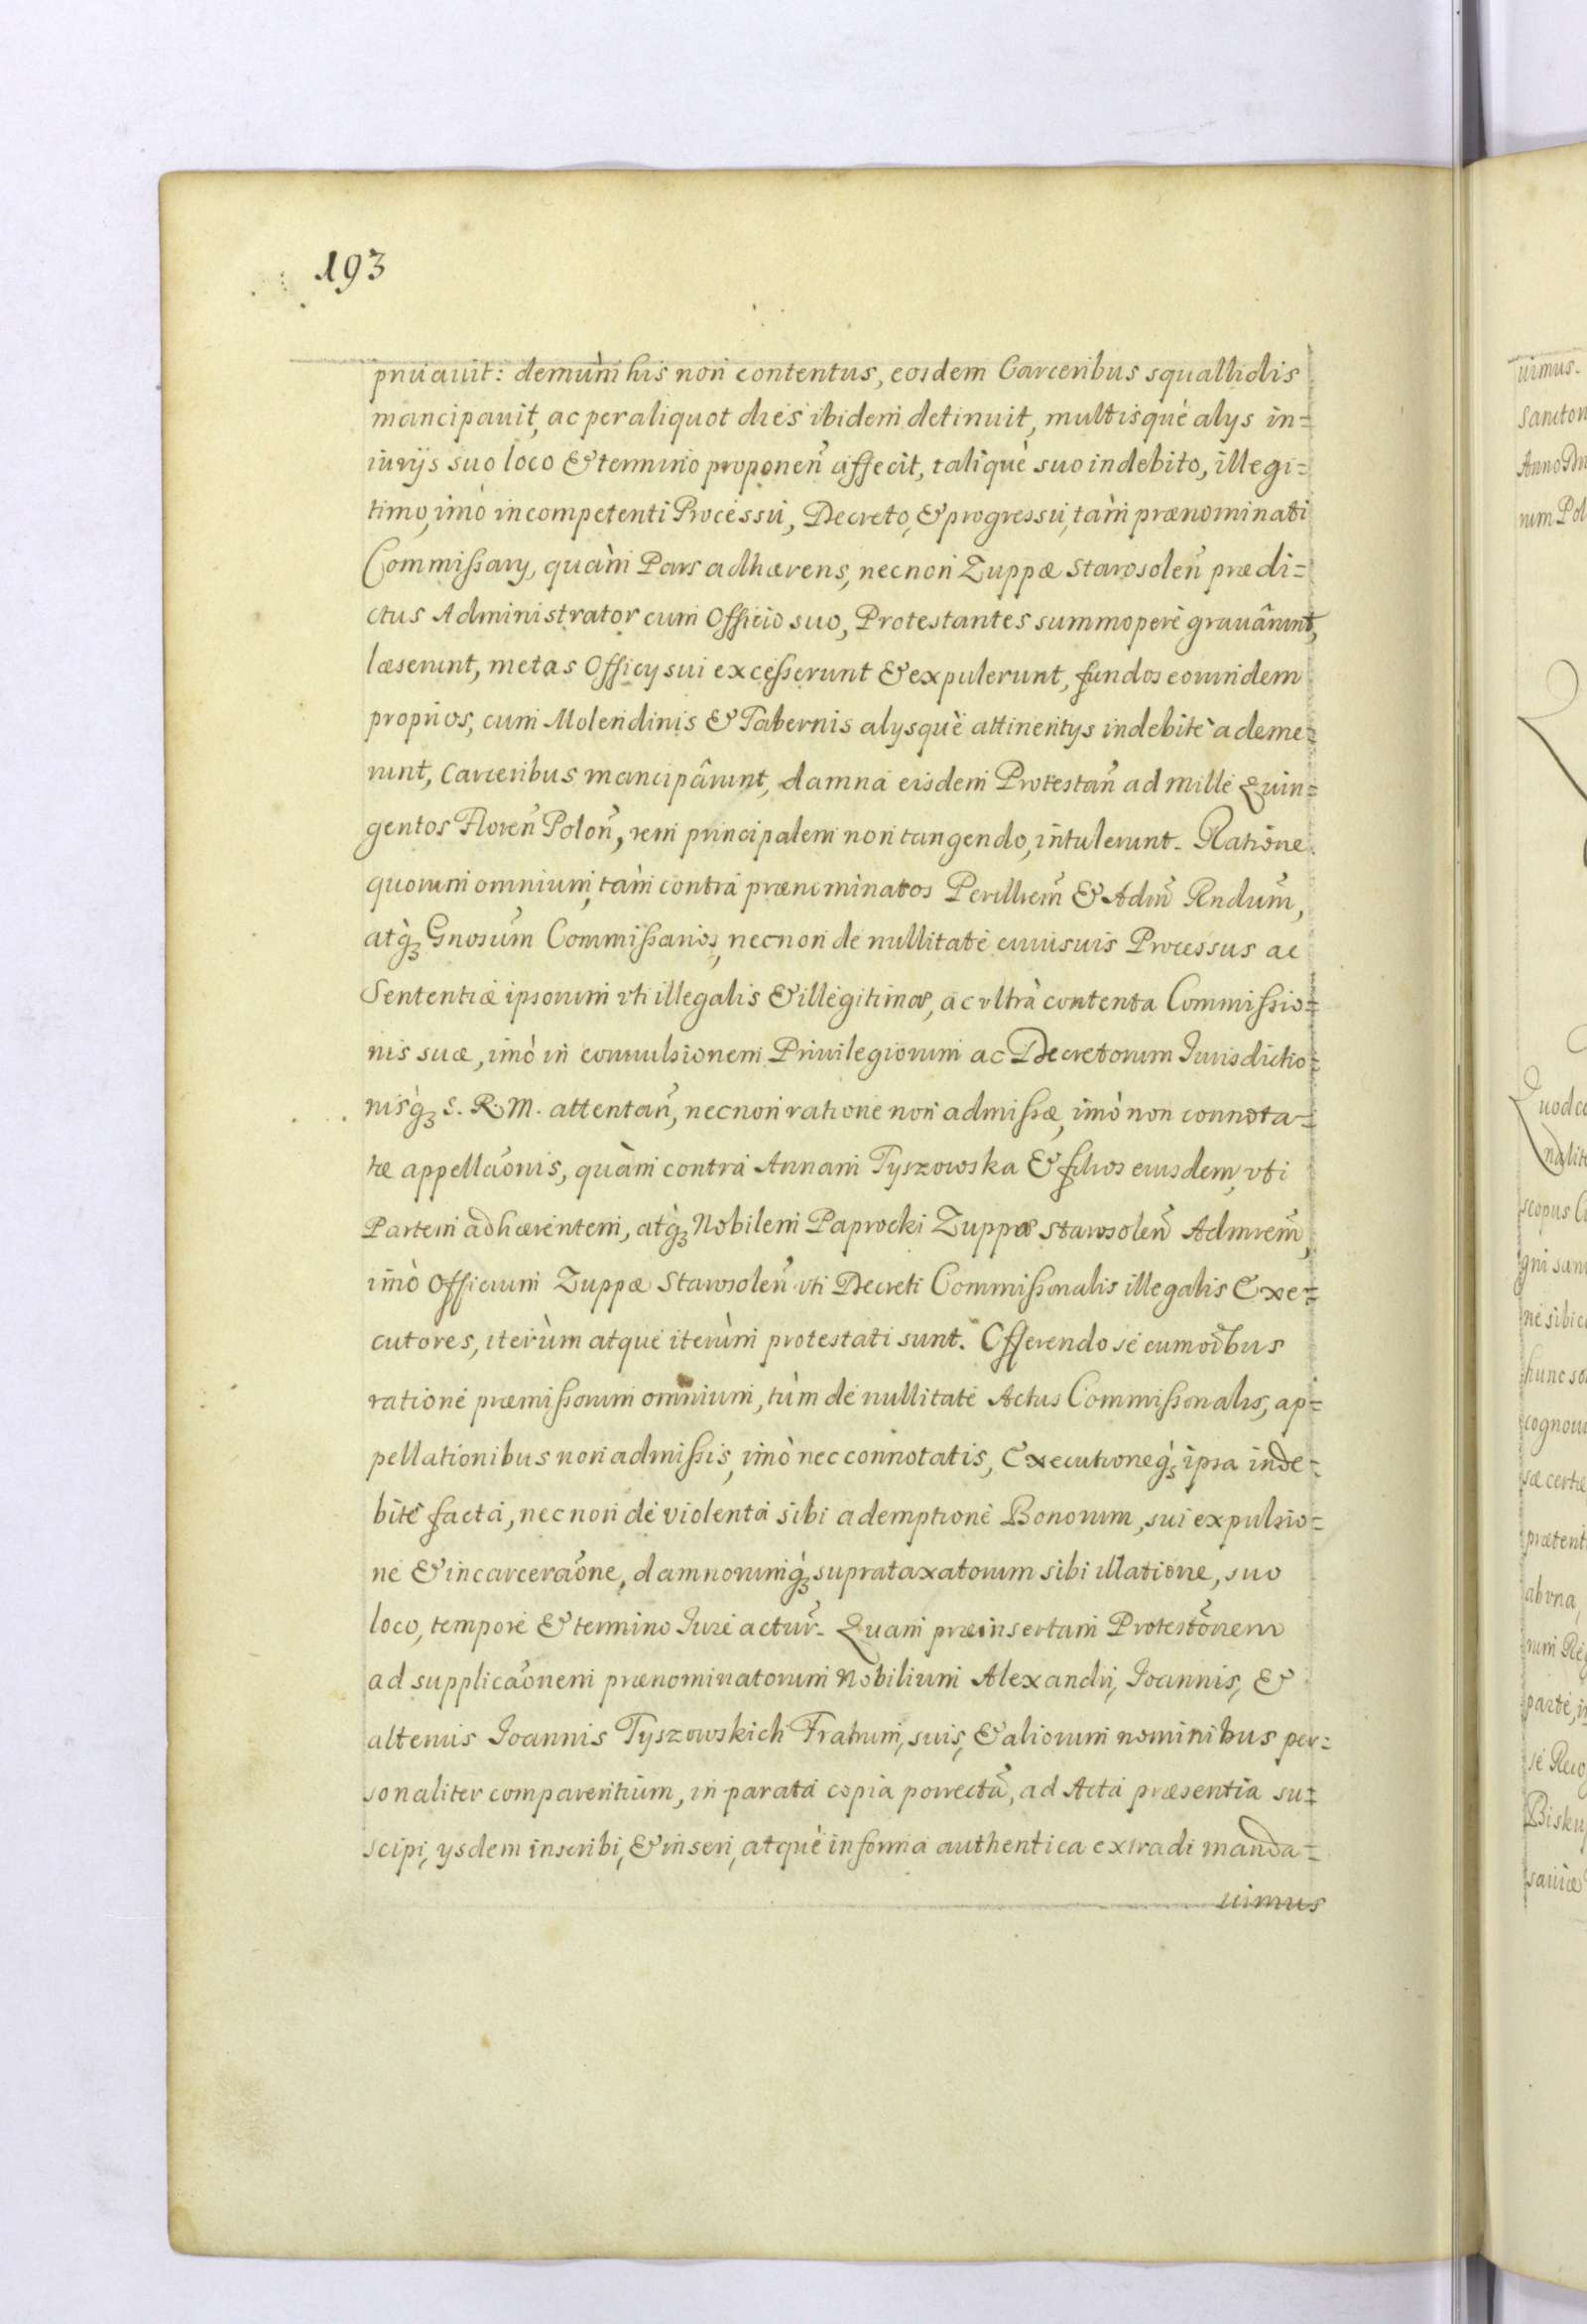 193
priuauit: demùm his non contentus, eosdem Carceribus squallidis
mancipauit, ac per aliquot dies ibidem detinuit, multisquè alys in=
iurijs suo loco & termino proponen̄ affecit, taliquè suo indebito, illegi=
timo, imò incompetenti Processu, Decreto, & progressu, tàm prænominati
Commissary, quàm Pars adhærens, necnon Zuppæ Starosolen̄ prædi=
ctus Administrator cum Officio suo, Protestantes summoperè grauârunt,
læserunt, metas Officy sui excesserunt & expulerunt, fundos eorundem
proprios, cum Molendinis & Tabernis alysquè attinentys indebitè ademe=
runt, Carceribus mancipârunt, damna eisdem Protestan̄ ad mille Quin=
gentos Floren̄ Polon̄, rem principalem non tangendo, intulerunt. Ratione
quorum omnium, tàm contra prænominatos Perillrem̄ & Adm̄ Rndum̄,
atq̀ꝫ Gnosum̄ Commissarios, necnon de nullitate cuiusuis Processus ac
Sententiæ ipsorum vti illegalis & illegitimæ, ac vltrà contenta Commissio=
nis suæ, imò in conuulsionem Priuilegiorum ac Decretorum Iurisdictio=
nisq̀ꝫ S. R. M. attentan̄, necnon ratione non admissæ, imò non connota=
tæ appellaōnis, quàm contra Annam Tyszowska & filios eiusdem, vti
Partem adhærentem, atq̀ꝫ Nobilem Paprocki Zuppæ Starosolen̄ Admrem̄,
imò Officium Zuppæ Starosolen̄ vti Decreti Commissionalis illegalis Exe=
cutores, iterùm atque iterùm protestati sunt. Offerendo se cum oībus
ratione præmissorum omnium, tùm de nullitate Actus Commissionalis, ap=
pellationibus non admissis, imò nec connotatis, Executioneq̀ꝫ ipsa inde=
bitè facta, necnon de violenta sibi ademptione Bonorum, sui expulsio=
ne & incarceraōne, damnorumq̀ꝫ suprataxatorum sibi illatione, suo
loco, tempore & termino Iure actur̄. Quam præinsertam Protestōnem
ad supplicaōnem prænominatorum Nobilium Alexandri, Ioannis, &
alterius Ioannis Tyszowskich Fratrum, suis, & aliorum nominibus per=
sonaliter comparentium, in parata copia porrectā, ad Acta præsentia su=
scipi, ysdem inscribi, & inseri, atquè in forma authentica extradi manda=
uimus